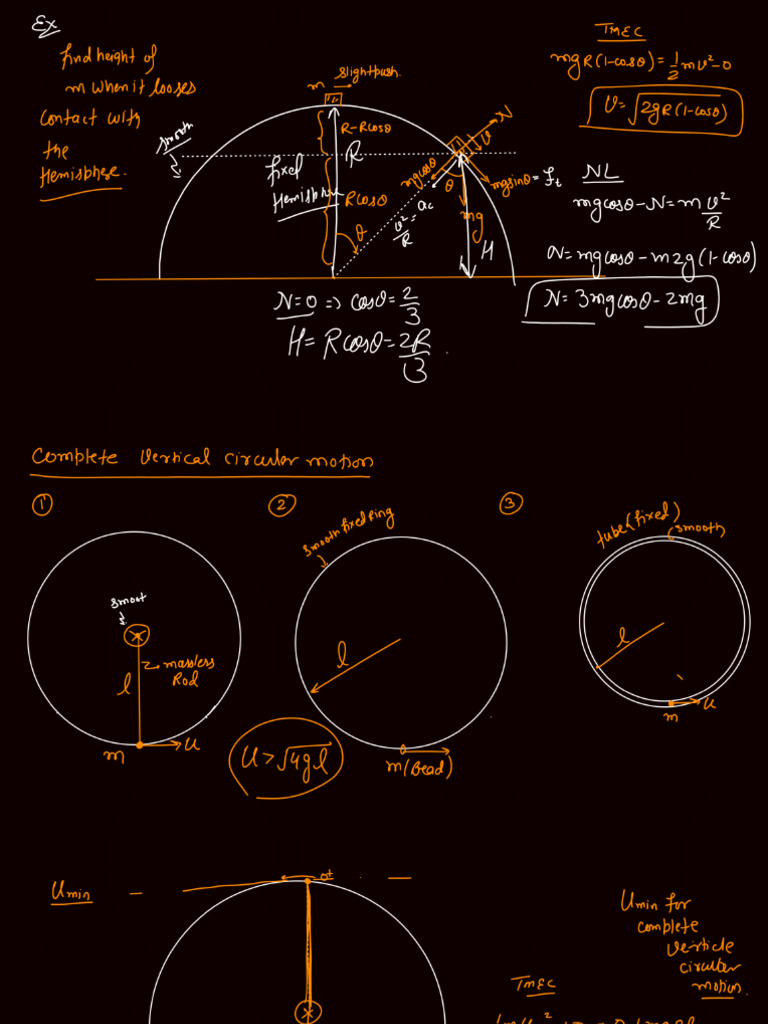 Ex
find height of
m when it looses
contact with
the
Hemisphere.
smooth
m
slight push.
R-Rcosθ
R
Rcosθ
fixed
Hemisphere
θ
N
v
mgcosθ
θ
mgsinθ = Ft
mg
ac
v²/R =
H
TMEC
mgR(1-cosθ) = 1/2 mv² - 0
v = √2gR(1-cosθ)
NL
mgcosθ - N = m v²/R
N = mgcosθ - m2g(1-cosθ)
N = 3mgcosθ - 2mg
N = 0 ⇒ cosθ = 2/3
H = Rcosθ = 2R/3
Complete Vertical circular motion
①
smoot
massless
Rod
l
m
u
②
smooth fixed ring
l
m(Bead)
u > √4gl
③
tube(fixed)
(smooth)
l
m
u
Umin
0+
Umin for
complete
verticle
circular
motion.
TMEC